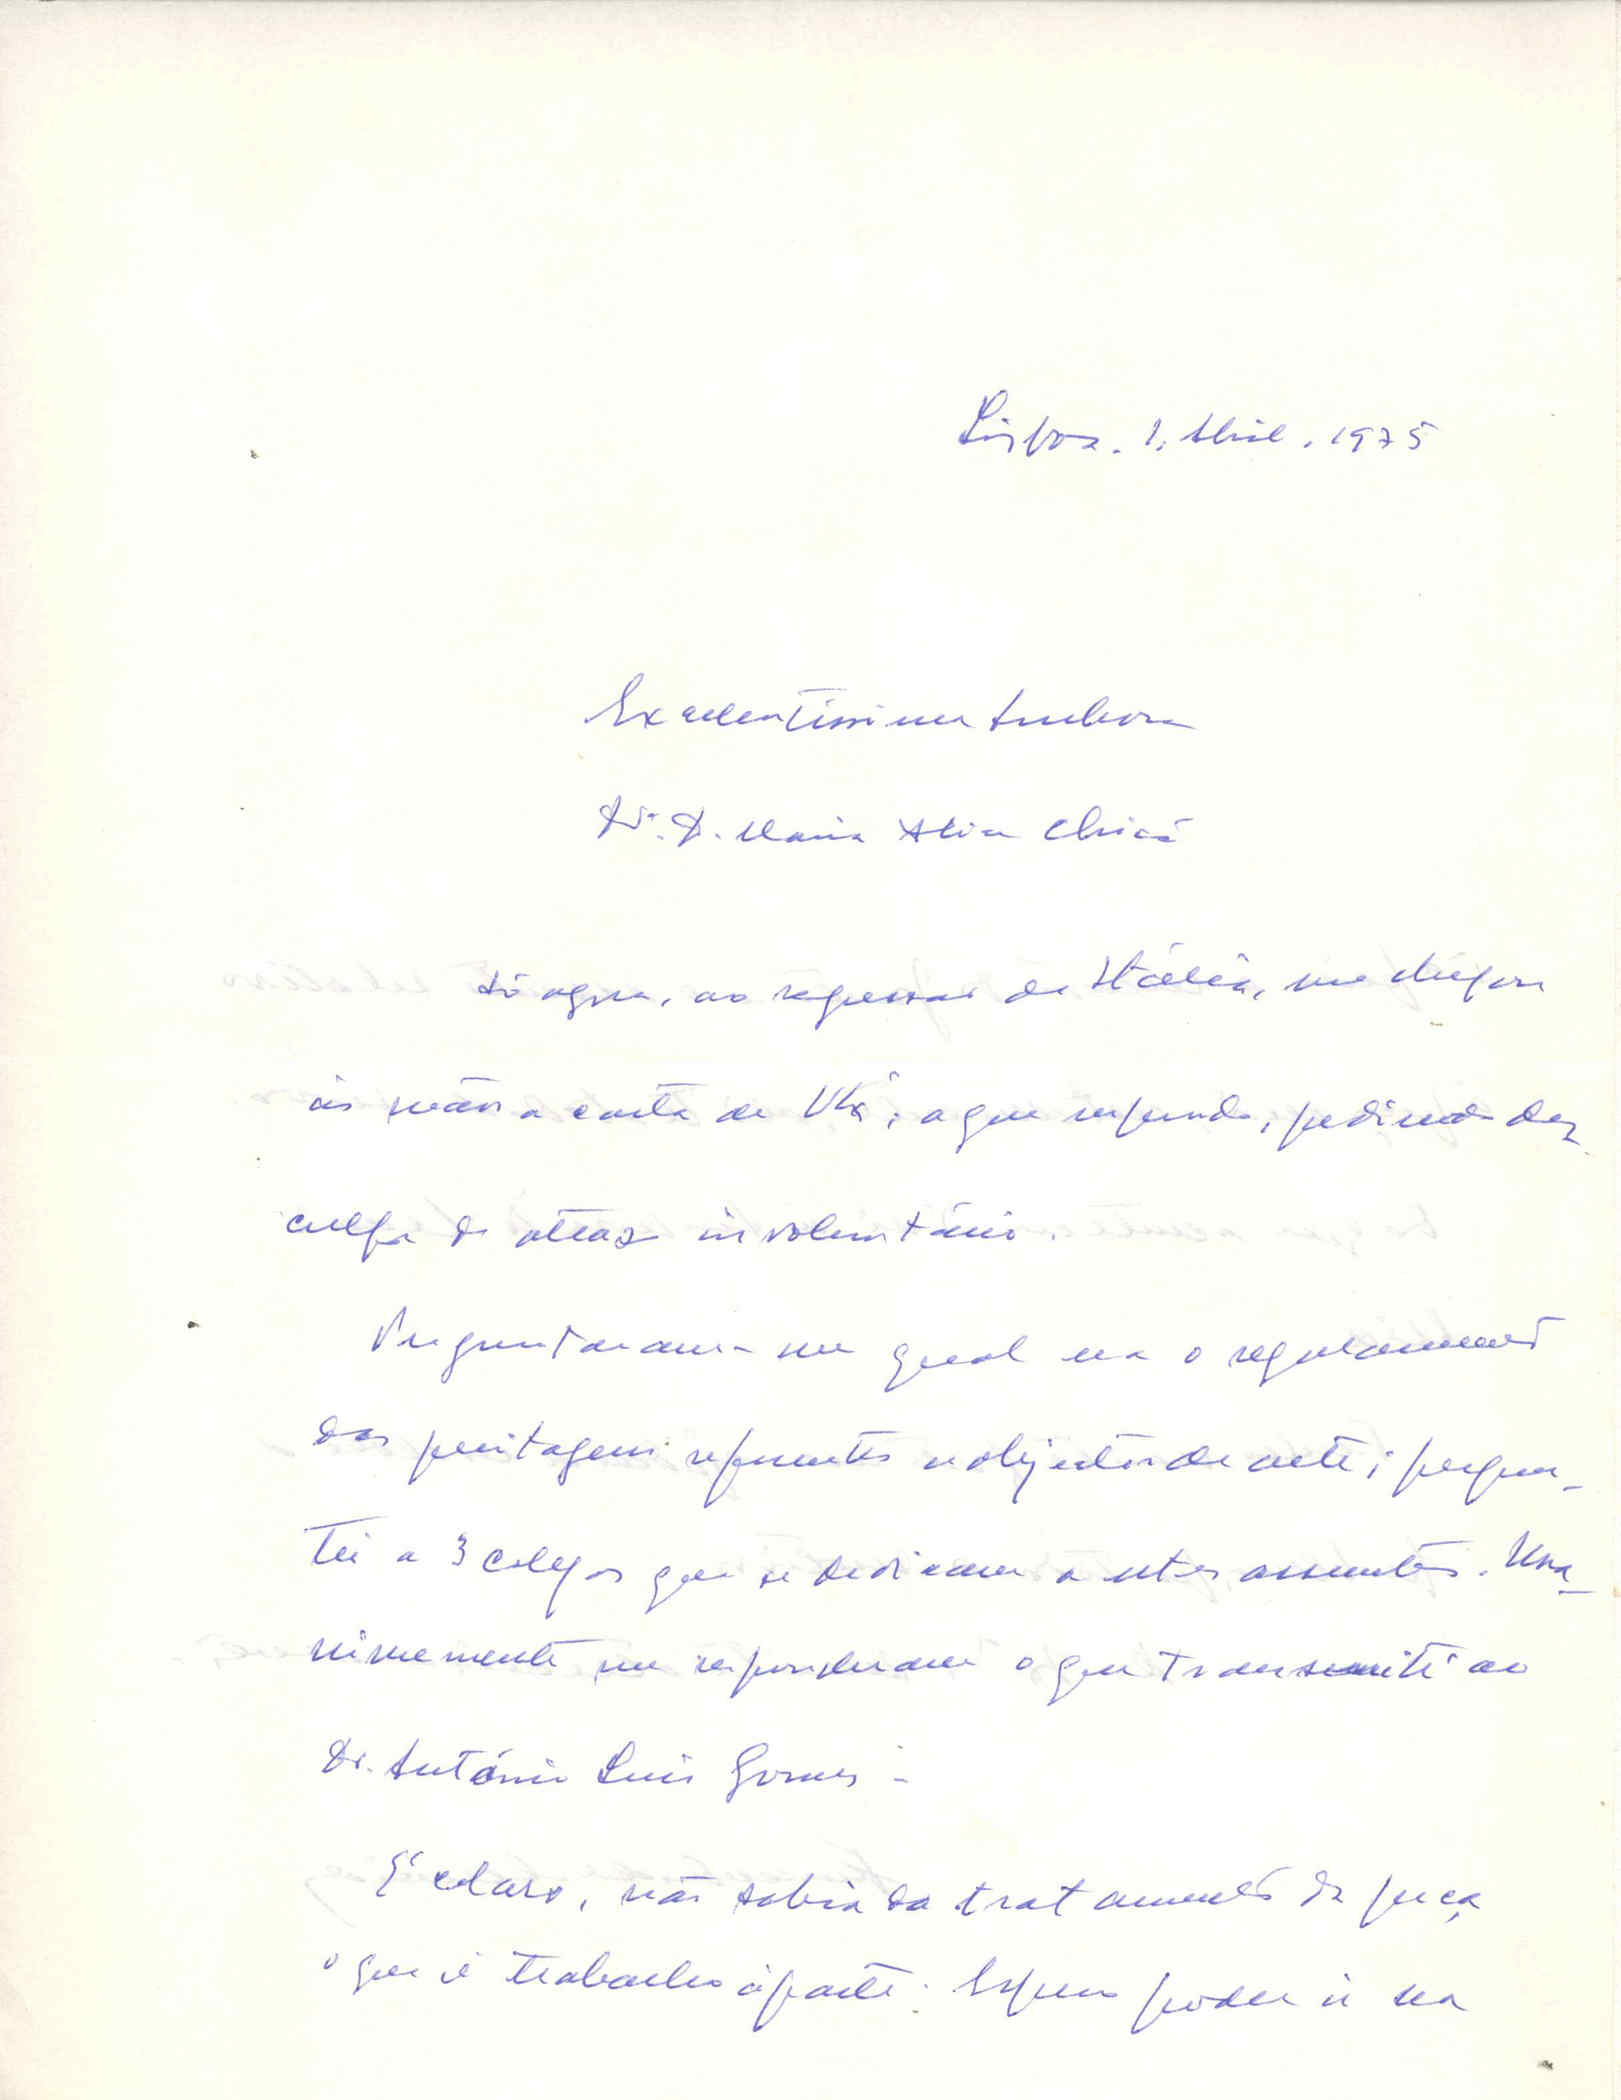 Lisboa. 1. Abril. 1975
Excelentíssima Senhora
Drª. D. Maria Alice Chicó
Só agora, ao regressar de Itália, me chegou
às mãos a carta de V. Exª; a que respondo, pedindo des
culpa do atrazo involuntário.
Preguntaram-me qual era o regulamento
das peritagens referentes a objectos de arte; pregun-
tei a 3 colegas que se dedicam a estes assuntos. Una-
nimemente me responderam o que transmiti ao
Dr. António Luis Gomes -
É claro, não sabia do tratamento da peça
o que é trabalho àparte. Espero poder ir na